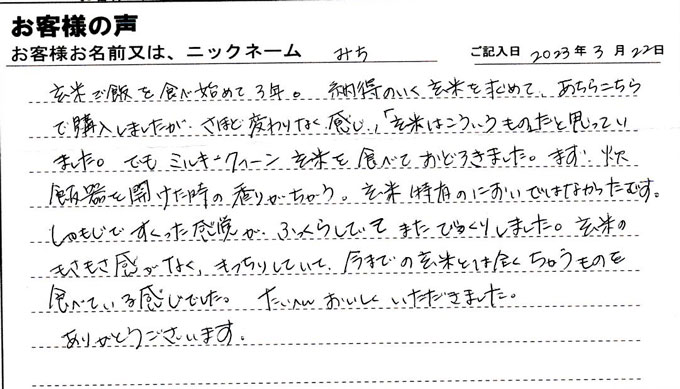 お客様の声
お客様お名前又は、ニックネーム みち ご記入日 2023年3月22日
玄米ご飯を食べ始めて3年。納得のいく玄米を求めて、あちらこちら
で購入しましたが、さほど変わりなく感じ、「玄米はこういうもの」だと思ってい
ました。でもミルキークイーン玄米を食べておどろきました。まず炊
飯器を開けた時の香りがちがう。玄米特有のにおいではなかったです。
しゃもじですくった感覚が、ふっくらしていてまたびっくりしました。玄米の
もさもさ感がなく、もっちりしていて、今までの玄米とは全くちがうものを
食べている感じでした。たいへんおいしくいただきました。
ありがとうございます。